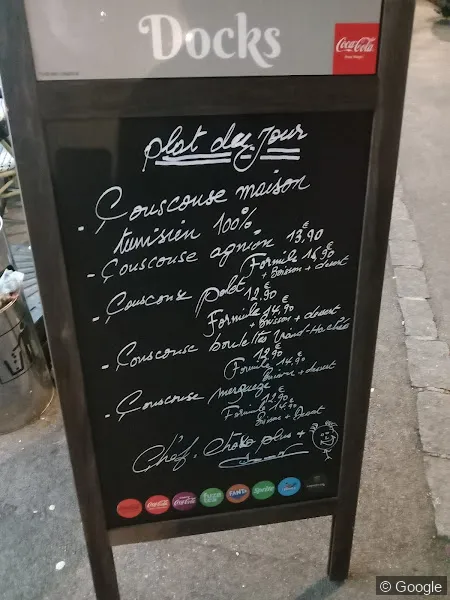 Docks
Coca-Cola
plat du jour
- Couscouse maison
tunisien 100%
- Couscouse agnion 13,90€
Formile 16,90€
+ Boisson + dessert
- Couscouse polet 12,90€
Formile 14,90€
+ Boisson + dessert
- Couscouse boulettes Viand-Hachées
12,90€
Formile 14,90€
Boisson + dessert
- Couscouse mergueze
12,90€
Formile 14,90€
Boisson + Desert
Chéf. Choko plus +
Coca-Cola
Coca-Cola
fuze tea
FANTA
Sprite
© Google